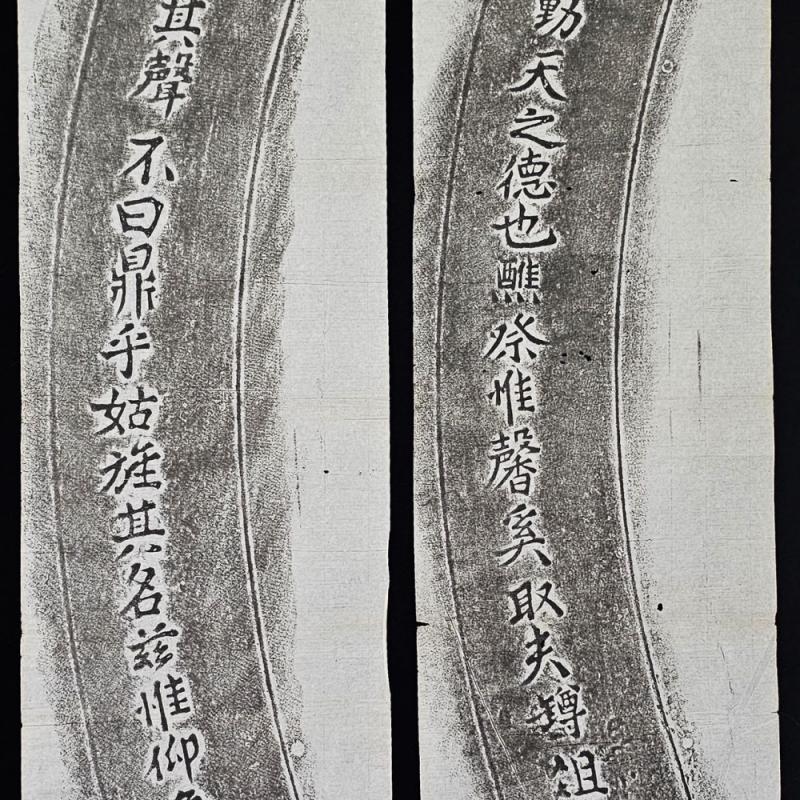 動天之德也醮祭惟馨奚取夫罇俎
其聲不曰鼎乎姑旌其名茲惟仰